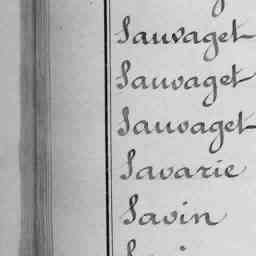 Sauvaget
Sauvaget
Sauvaget
Savarie
Savin